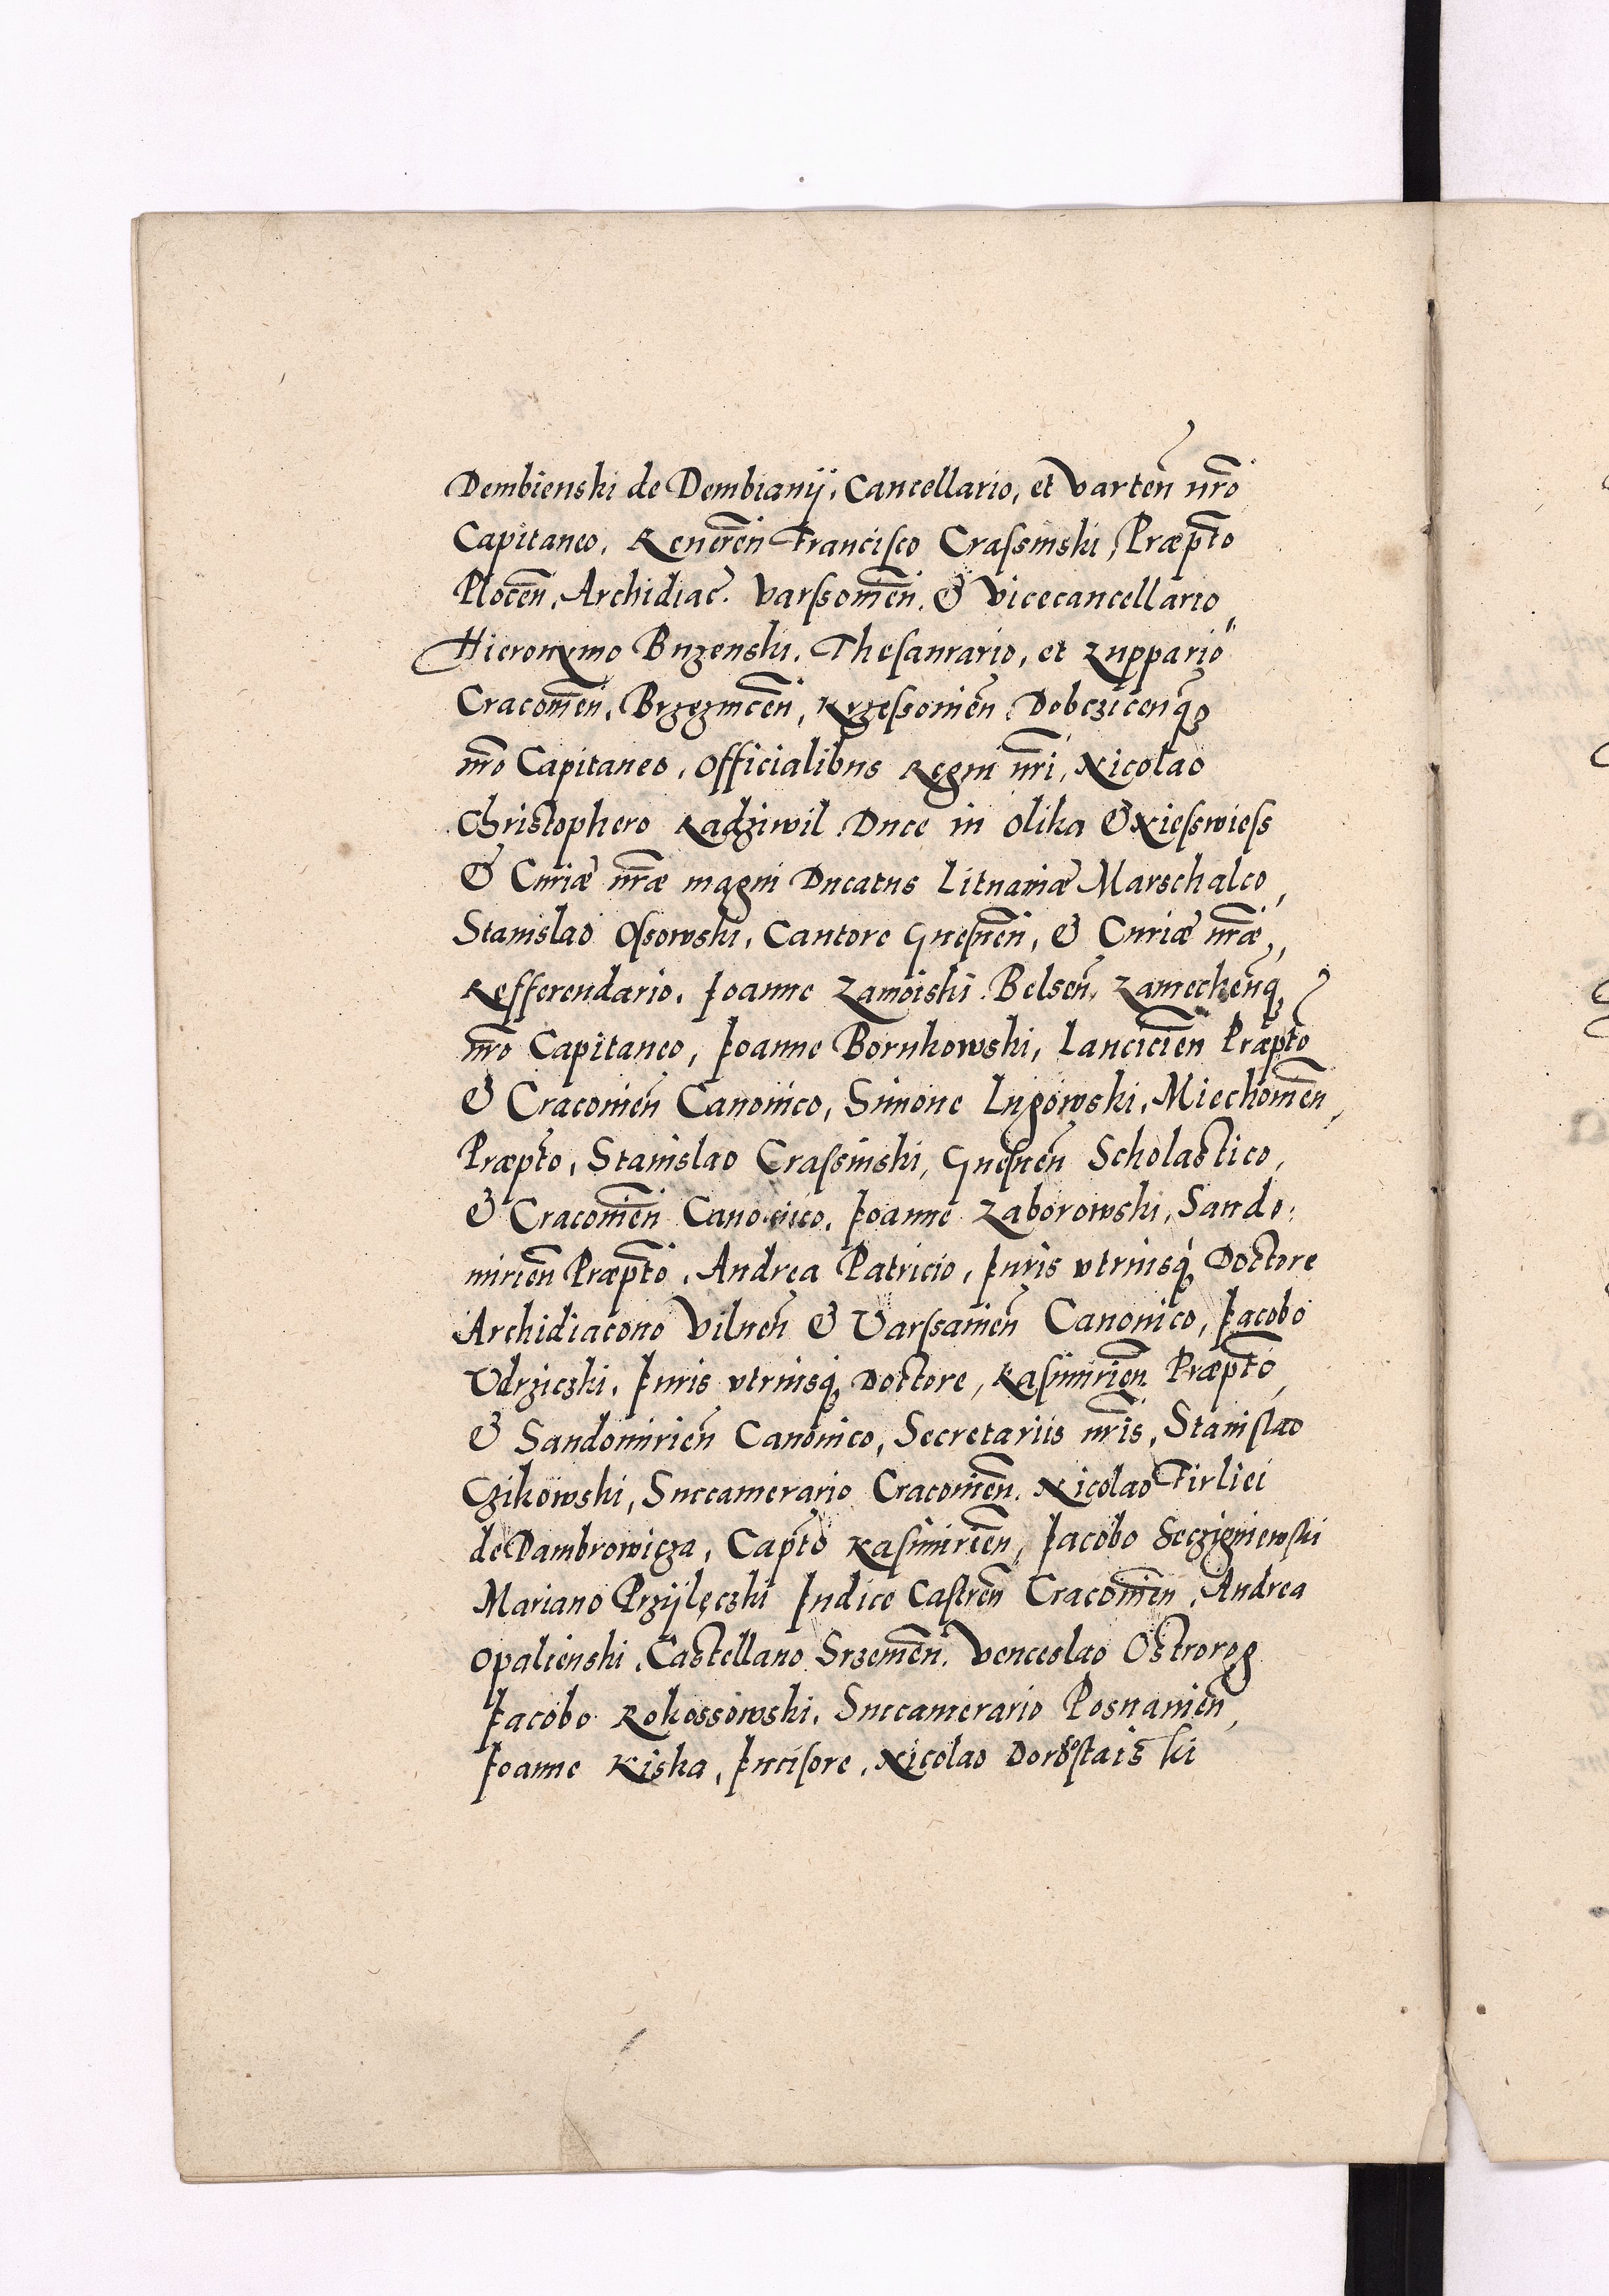 Dembienski de Dembianÿ, Cancellario, et Varteñ nr̃o
Capitaneo, Reuereñ Francisco Craſsinski, Præpt̃o
Ploceñ, Archidiac̃. Varſsouieñ, & Vicecancellario
Hieronymo Buzenski, Theſaurario, et Zuppario
Cracouieñ, Brzezniceñ, Krzeſsouieñ Dobczicenq̃
nr̃o Capitaneo, Officialibus Regni nr̃i, Nicolao
Christophero Radziwil Duce in Olika & Nieſswieſs
& Curiæ nr̃æ magni Ducatus Lituaniæ Marschalco,
Stanislao Oſsowski, Cantore Gneſneñ, & Curiæ nr̃æ,
Refferendario, Ioanne Zamoiski Belseñ, Zamecheñq̃
nr̃o Capitaneo, Ioanne Bornkowski, Lancicieñ Præpt̃o
& Cracouieñ Canonico, Simone Lugowski, Miechouieñ,
Præpt̃o, Stanislao Craſsinski, Gneſneñ Scholastico,
& Cracouieñ Canonico, Ioanne Zaborowski, Sando:
mirieñ Præpt̃o, Andrea Patricio, Iuris vtriusq̃ Doctore
Archidiacono Vilneñ & Varſsauieñ Canonico, Iacobo
Vdrziczki, Iuris vtriusq̃ Doctore, Kaſimirieñ Præpt̃o,
& Sandomirieñ Canonico, Secretariis nr̃is, Staniſlao
Czikowski, Succamerario Cracouieñ, Nicolao Firliei
de Dambrowicza, Capt̃o Kaſimirieñ, Iacobo Seczigniewſki
Mariano Przÿlęczki Iudice Caſtreñ Cracouieñ, Andrea
Opalienski, Castellano Srzemeñ, Venceslao Ostrorog
Iacobo Rokossowski, Succamerario Posnanieñ,
Ioanne Kiska, Inciſore, Nicolao Doroſtaiski